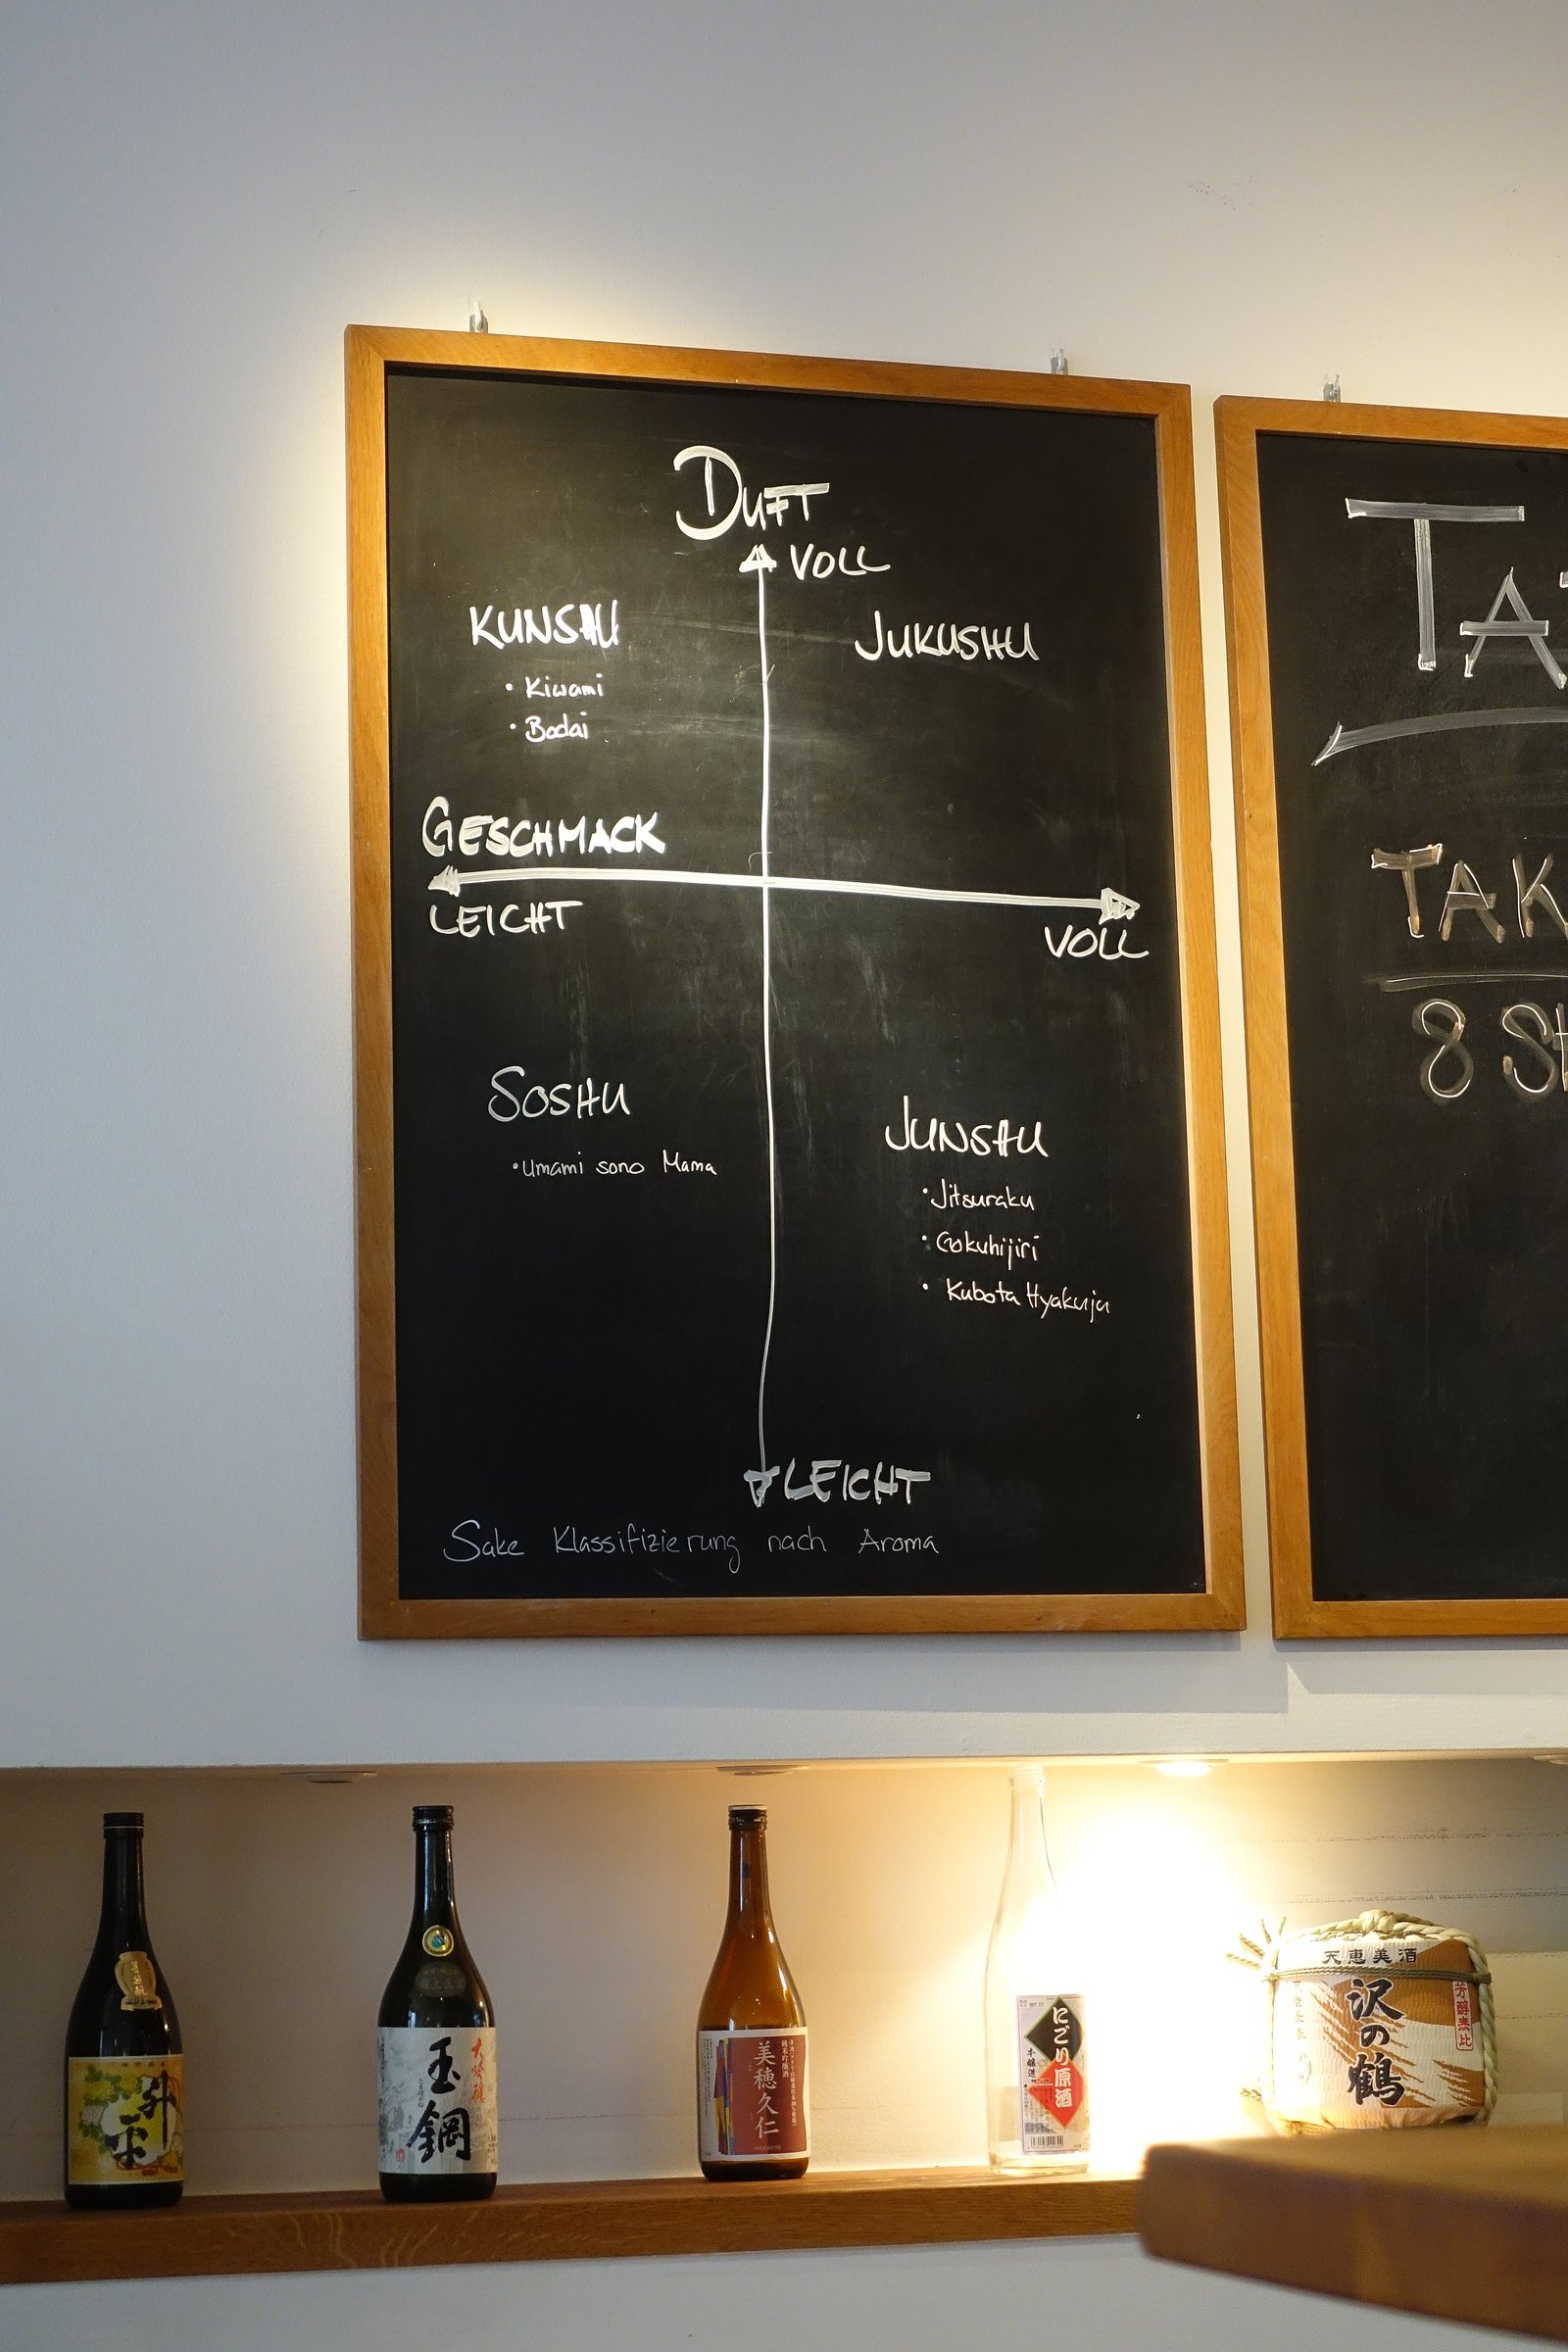 DUFT
VOLL
KUNSHU
JUKUSHU
• Kiwami
• Bodai
GESCHMACK
LEICHT
VOLL
SOSHU
• Umami sono Mama
JUNSHU
• Jitsuraku
• Gokuhijiri
• Kubota Hyakuju
LEICHT
Sake Klassifizierung nach Aroma
TA
TAK
8 St
升平
玉鋼
大吟醸
美穂久仁
純米吟醸酒
にごり原酒
本醸造
天恵美酒
沢の鶴
芳醇無比